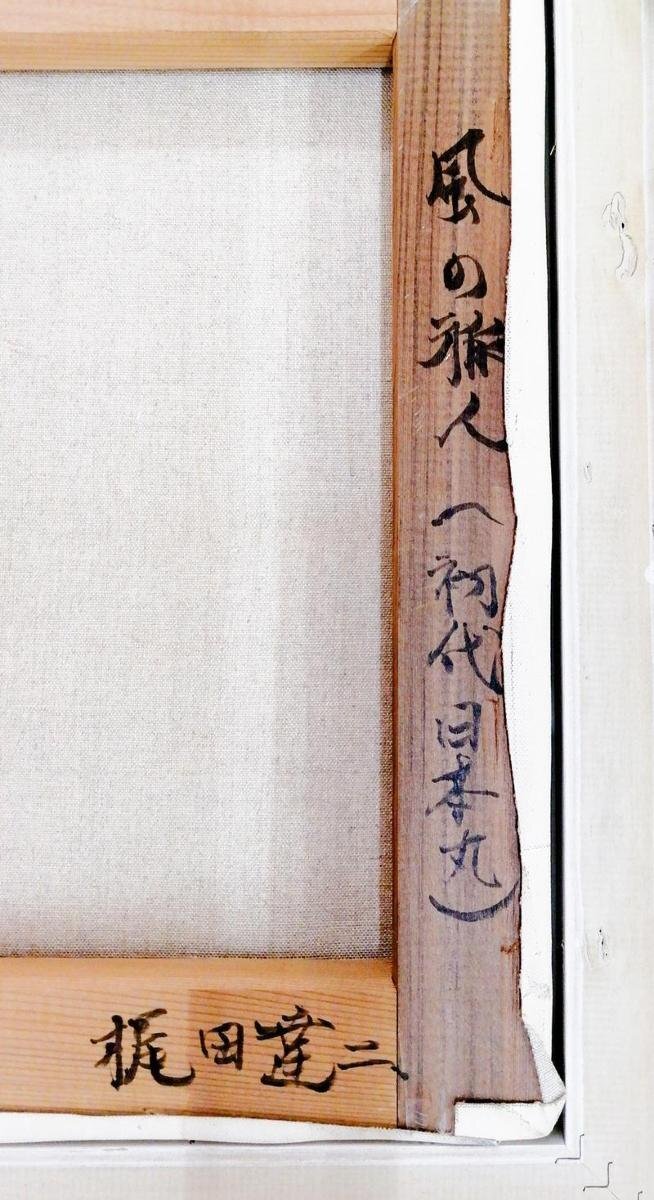 風の旅人(初代日本丸)
梶田達二